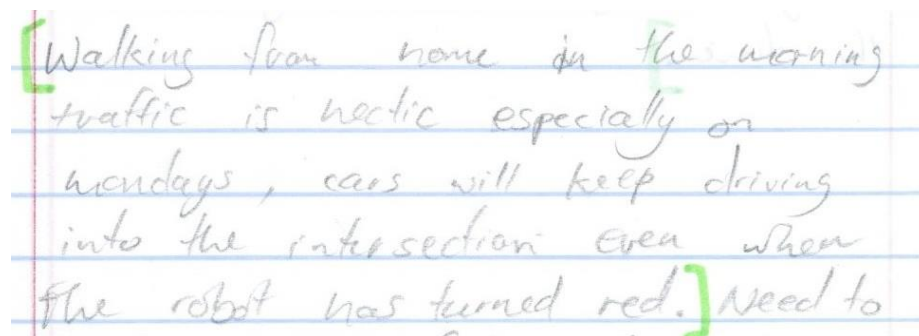 [Walking from home in the morning
traffic is hectic especially on
mondays, cars will keep driving
into the intersection even when
the robot has turned red.] Need to